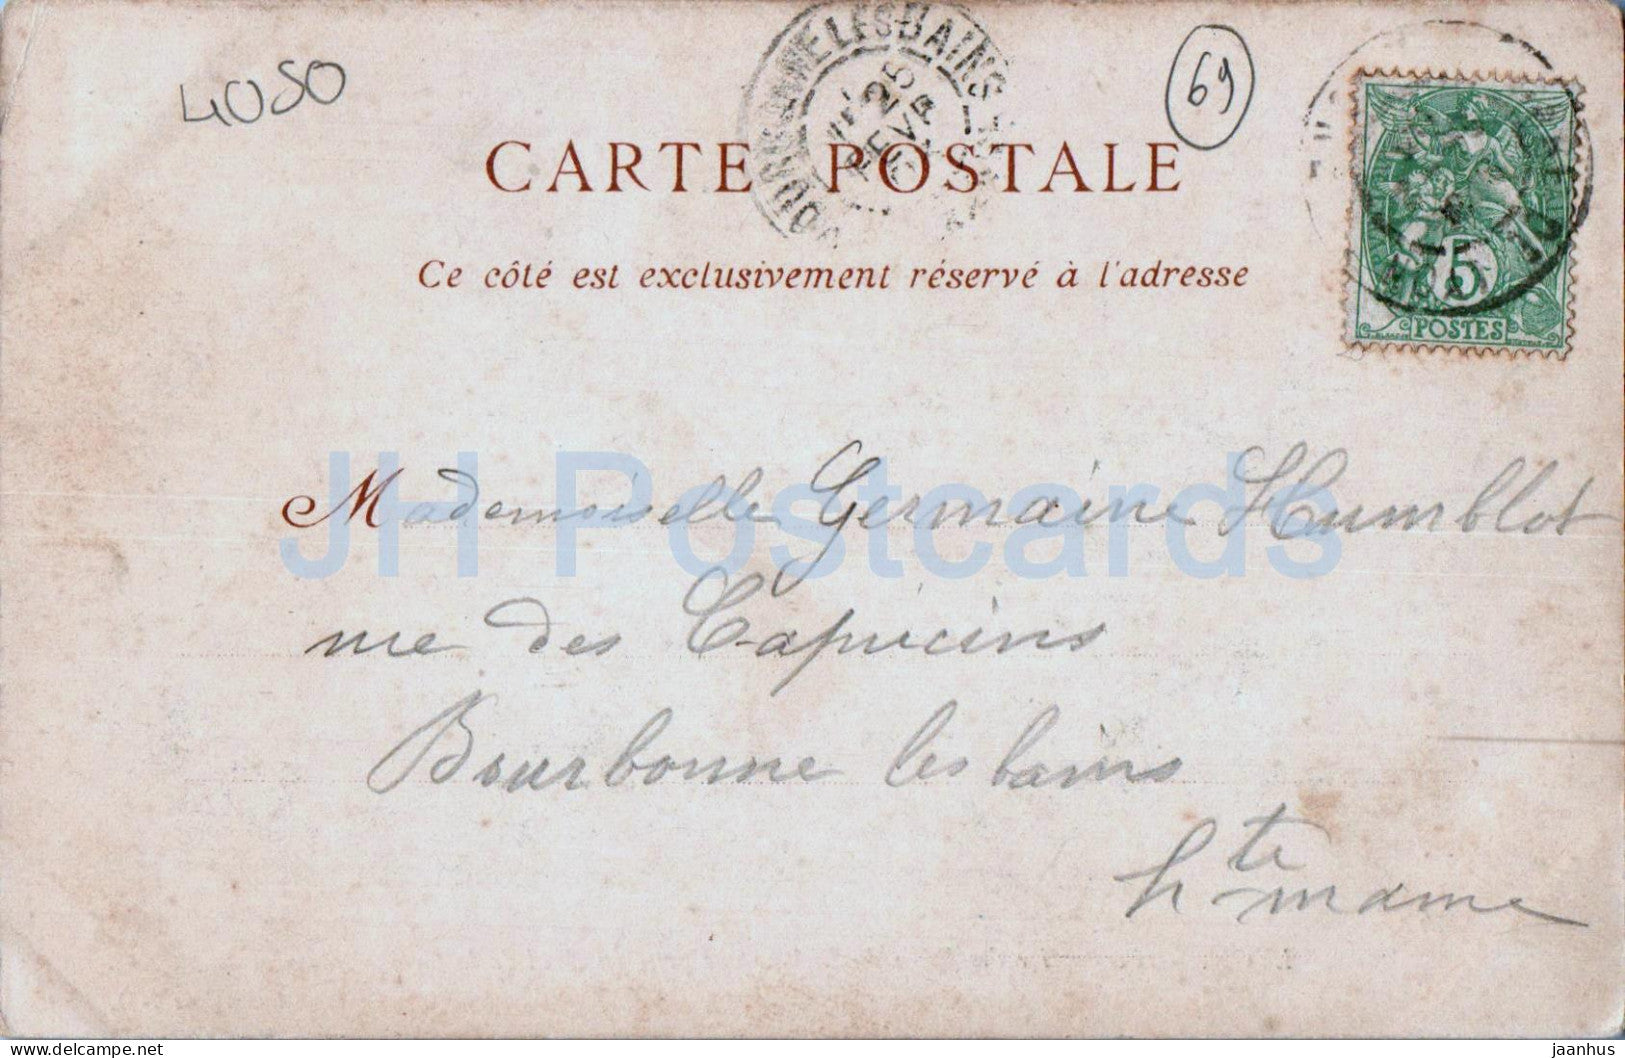 4080
69
BOURBONNE LES BAINS
25
CARTE POSTALE
Ce côté est exclusivement réservé à l'adresse
5
POSTES
JH Postcards
Mademoiselle Germaine Humblot
rue des Capucins
Bourbonne les bains
hte marne
delcampe.net
jaanhus